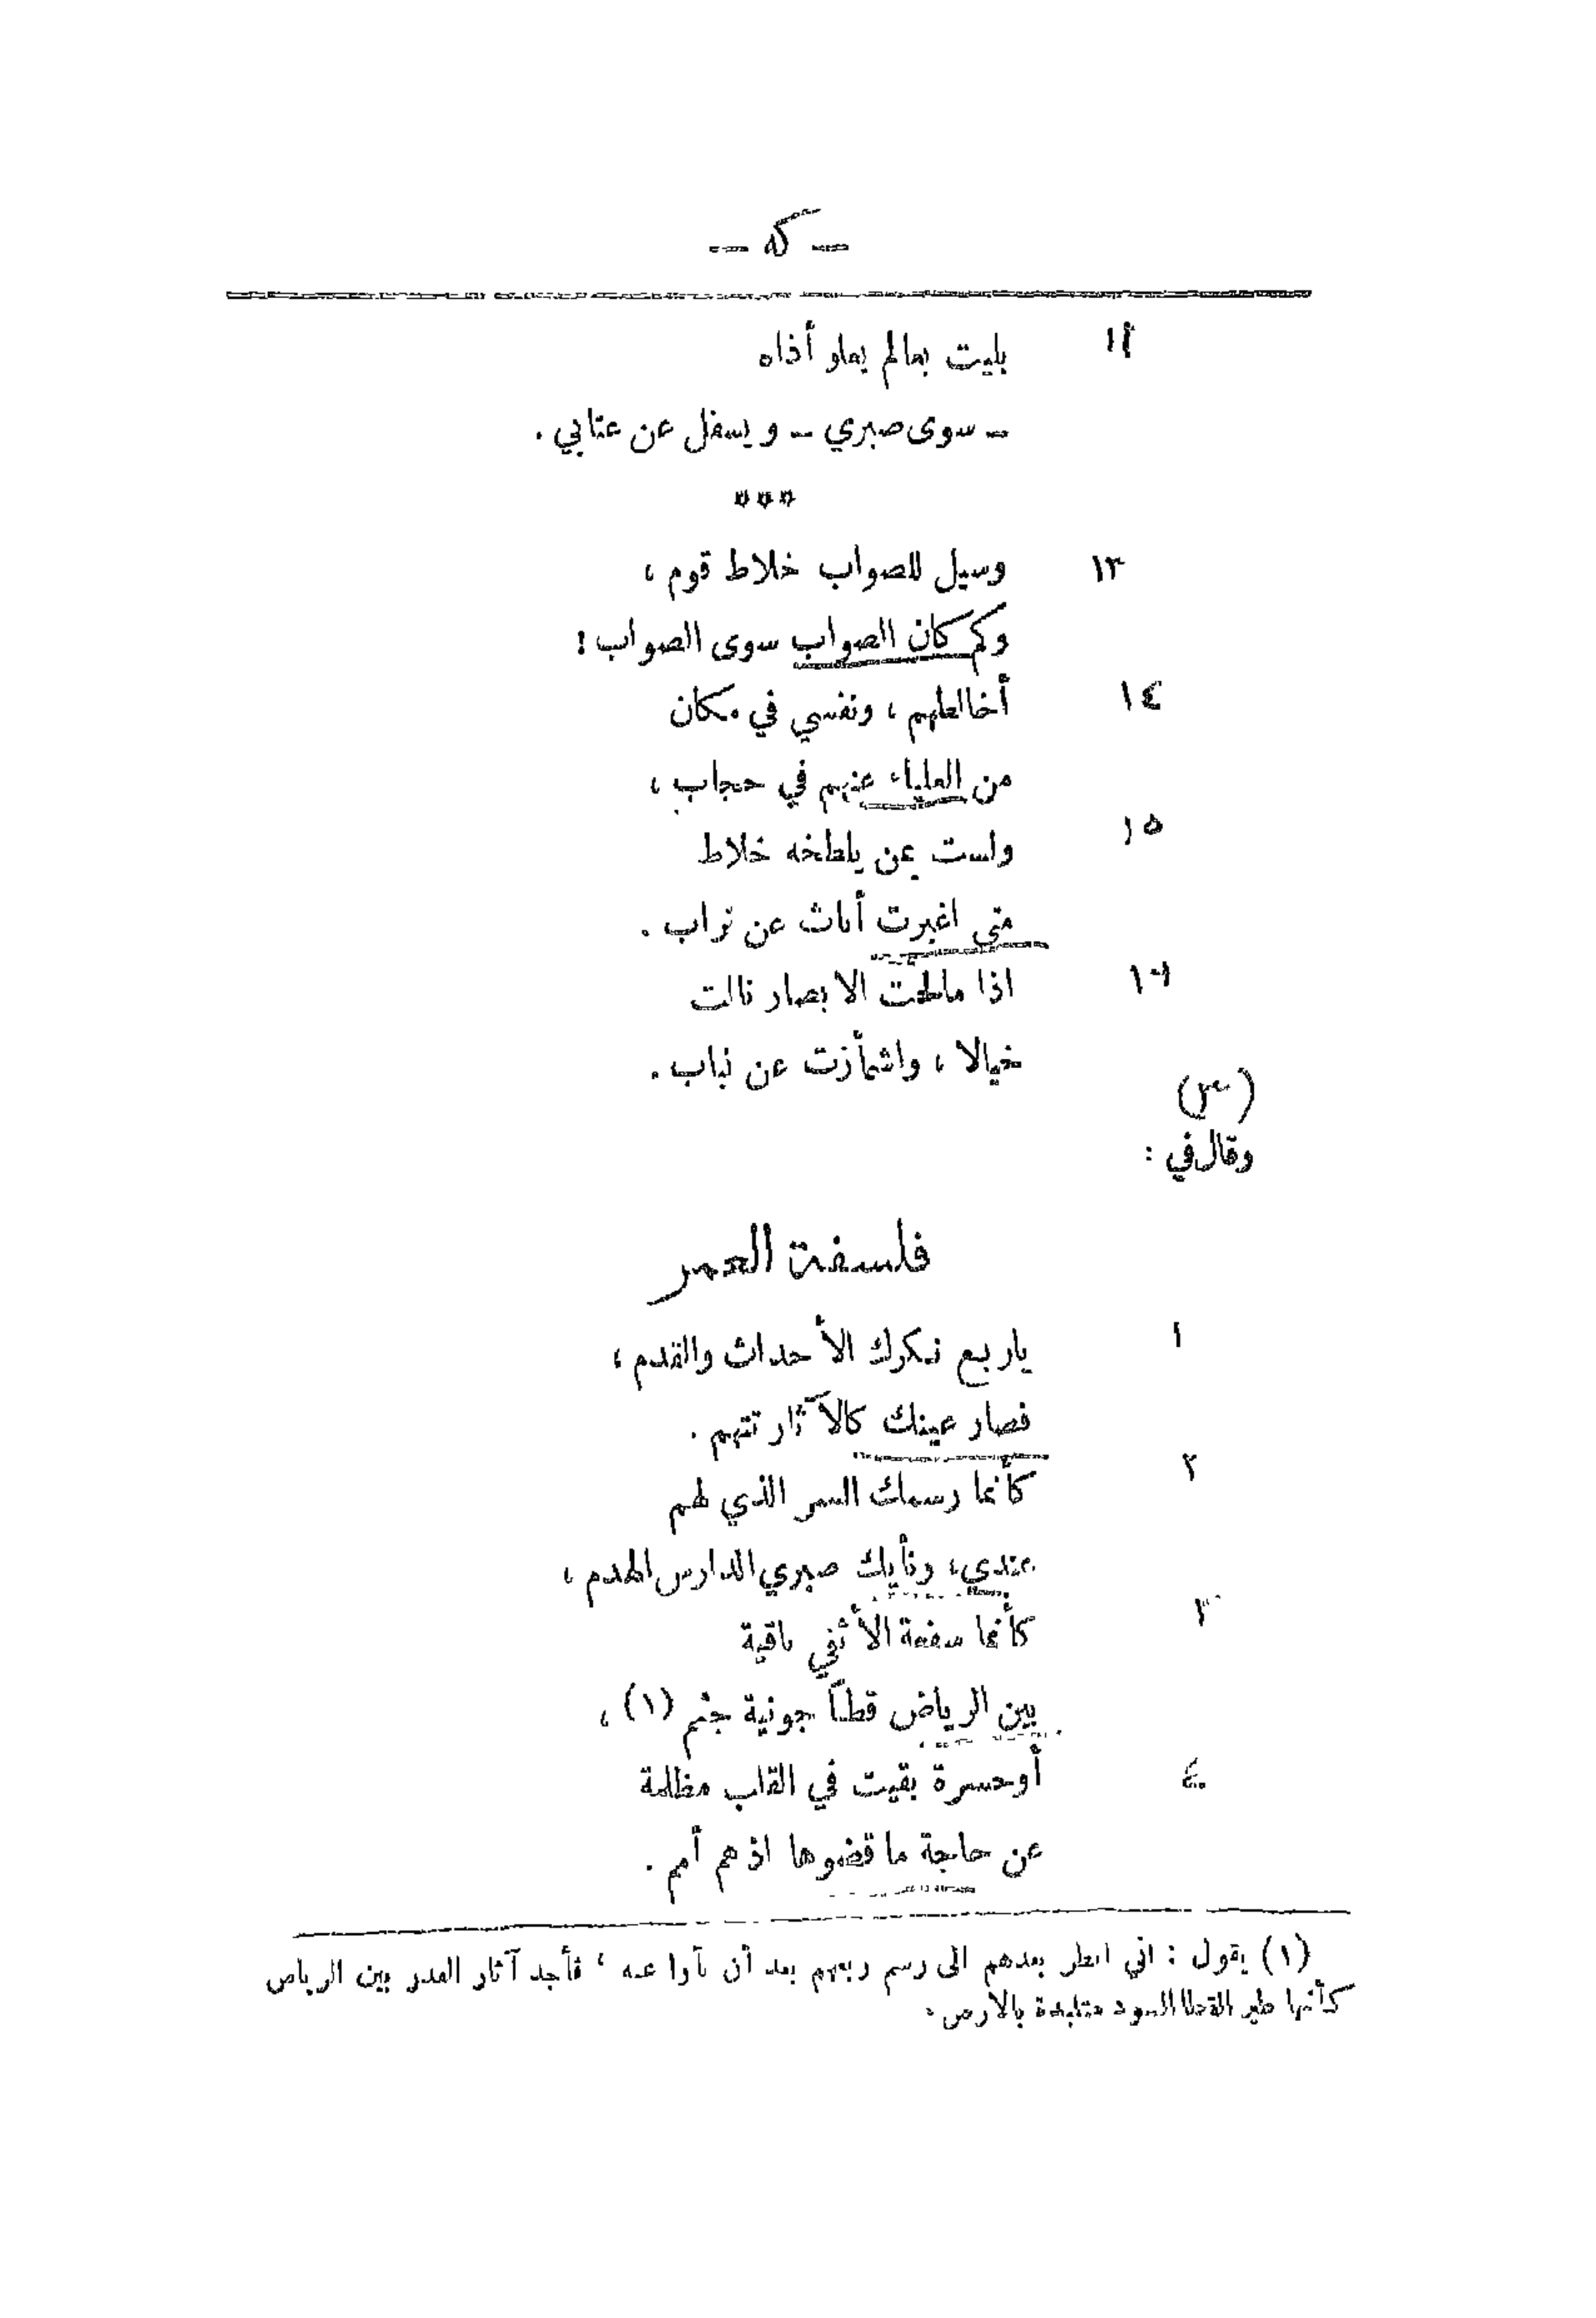 — كه —
١٢
بليت بعالم يعلو أذاه
– سوى صبري – ويسفل عن عتابي .
***
١٣
وسيل للصواب خلاط قوم ،
وكم كان الصواب سوى الصواب !
١٤
أخالطهم ، ونفسي في مكان
من العلياء عنهم في حجاب ،
١٥
ولست بمن يلطخه خلاط
متى اغبرت أناث عن تراب .
١٦
اذا ما لحت الابصار نالت
خيالا ، واشمأزت عن ذباب .
(٣)
وقال في :
فلسفة العمر
١
ياربع نكرك الأحداث والقدم ،
فصار عينك كالآثار تتهم .
٢
كأنما رسمك السر الذي لهم
عندي ، ونأيك صبري الدارس الهدم ،
٣
كأنما سفعة الأثفي باقية
بين الرياض قطاً جونية جثم (١) ،
٤
أو حسرة بقيت في القلب مظلمة
عن حاجة ما قضوها اذ هم أمم .
(١) يقول : اني انظر بعدهم الى رسم ربعهم بعد أن نأوا عنه ، فأجد آثار القدر بين الرياض
كأنها طير القطا السود متلبدة بالارض .